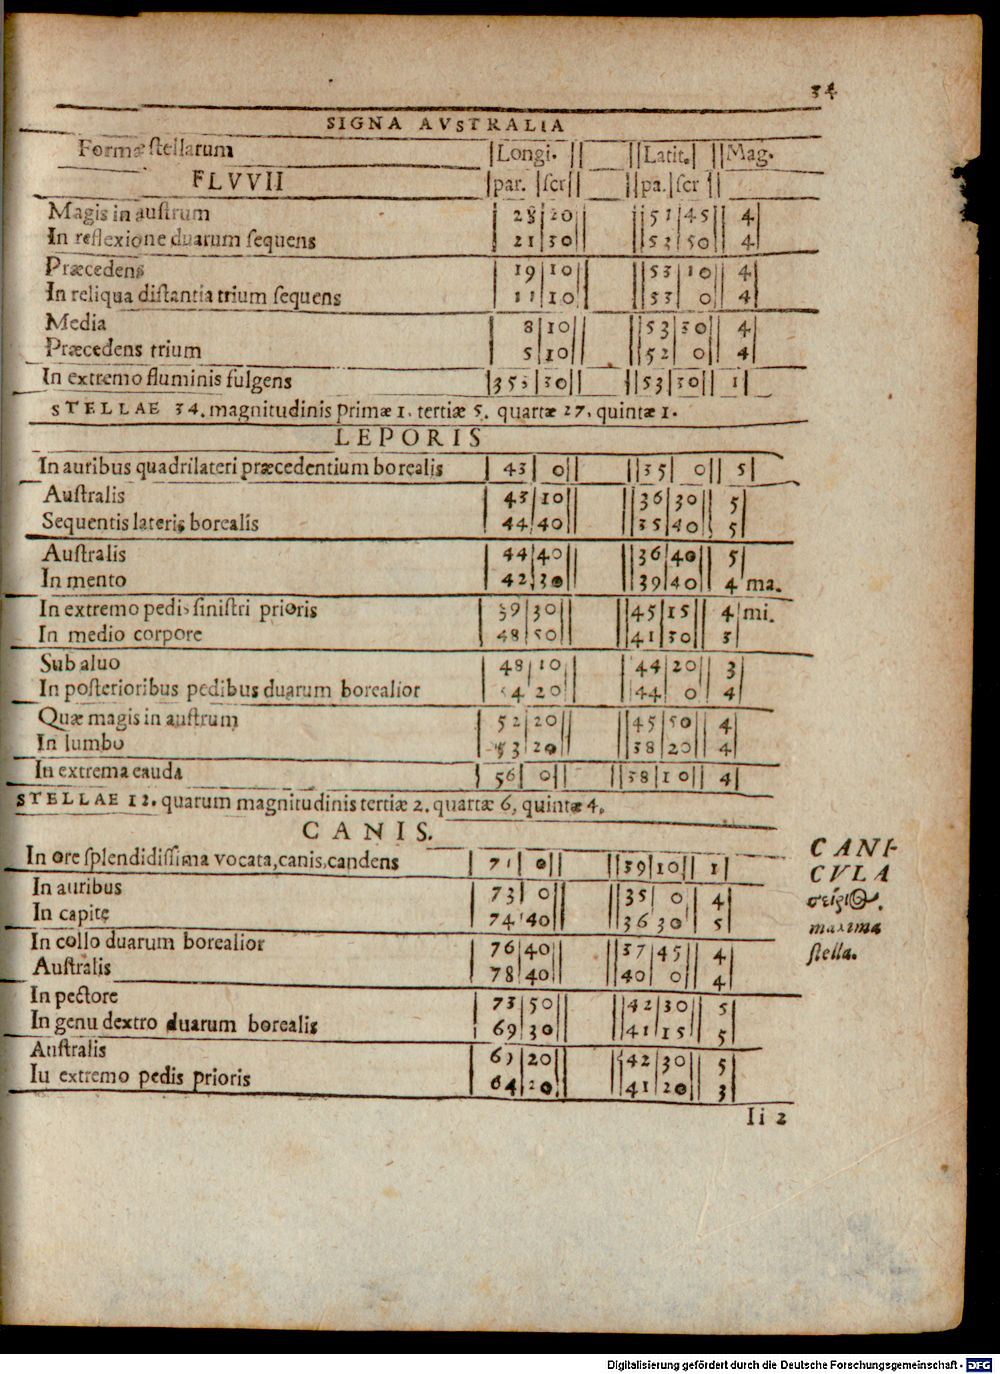 34
SIGNA AVSTRALIA
Formæ stellarum | Longi. | Latit. | Mag.
FLVVII | par. | scr | pa. | scr
Magis in austrum | 28 | 20 | 51 | 45 | 4
In reflexione duarum sequens | 21 | 30 | 53 | 50 | 4
Præcedens | 19 | 10 | 53 | 10 | 4
In reliqua distantia trium sequens | 11 | 10 | 53 | 0 | 4
Media | 8 | 10 | 53 | 30 | 4
Præcedens trium | 5 | 10 | 52 | 0 | 4
In extremo fluminis fulgens | 353 | 30 | 53 | 30 | 1
STELLAE 34. magnitudinis primæ 1. tertiæ 5. quartæ 27, quintæ 1.
LEPORIS
In auribus quadrilateri præcedentium borealis | 43 | 0 | 35 | 0 | 5
Australis | 43 | 10 | 36 | 30 | 5
Sequentis lateris borealis | 44 | 40 | 35 | 40 | 5
Australis | 44 | 40 | 36 | 40 | 5
In mento | 42 | 30 | 39 | 40 | 4 ma.
In extremo pedis sinistri prioris | 39 | 30 | 45 | 15 | 4 mi.
In medio corpore | 48 | 50 | 41 | 30 | 3
Sub aluo | 48 | 10 | 44 | 20 | 3
In posterioribus pedibus duarum borealior | 4 | 20 | 44 | 0 | 4
Quæ magis in austrum | 52 | 20 | 45 | 50 | 4
In lumbo | 53 | 20 | 38 | 20 | 4
In extrema cauda | 56 | 0 | 38 | 10 | 4
STELLAE 12. quarum magnitudinis tertiæ 2. quartæ 6, quintæ 4.
CANIS.
In ore splendidissima vocata, canis, candens | 71 | 0 | 39 | 10 | 1
In auribus | 73 | 0 | 35 | 0 | 4
In capite | 74 | 40 | 36 | 30 | 5
In collo duarum borealior | 76 | 40 | 37 | 45 | 4
Australis | 78 | 40 | 40 | 0 | 4
In pectore | 73 | 50 | 42 | 30 | 5
In genu dextro duarum borealis | 69 | 30 | 41 | 15 | 5
Australis | 69 | 20 | 42 | 30 | 5
Iu extremo pedis prioris | 64 | 20 | 41 | 20 | 3
CANI-
CVLA
σείριος.
maxima
stella.
Ii 2
Digitalisierung gefördert durch die Deutsche Forschungsgemeinschaft - DFG